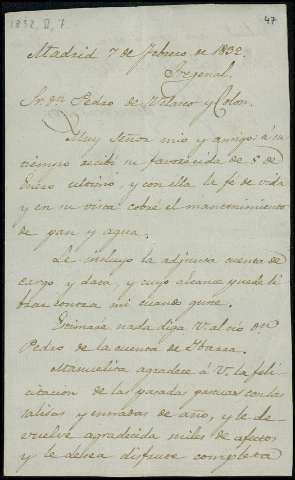 1832, II, 7
47
Madrid 7 de Febrero de 1832.
Fregenal.
Sr. dn. Pedro de Velasco y Colon.
Muy Señor mio y amigo: á su
tiempo recibi su favorecida de 5 de
Enero ultimo, y con ella la fé de vida
y en su vista cobré el mantenimiento
de pan y agua.
Le incluyo la adjunta cuenta de
cargo y data, y cuyo alcance puede li
brar contra mi cuando guste.
Estimaré nada diga V. al tio dn.
Pedro de la cuenta de Ibarra.
Manuelita agradece á V. la feli
citacion de las pasadas pascuas con las
salidas y entradas de año, y le de
vuelve agradecida miles de afectos
y le desea disfrute completa